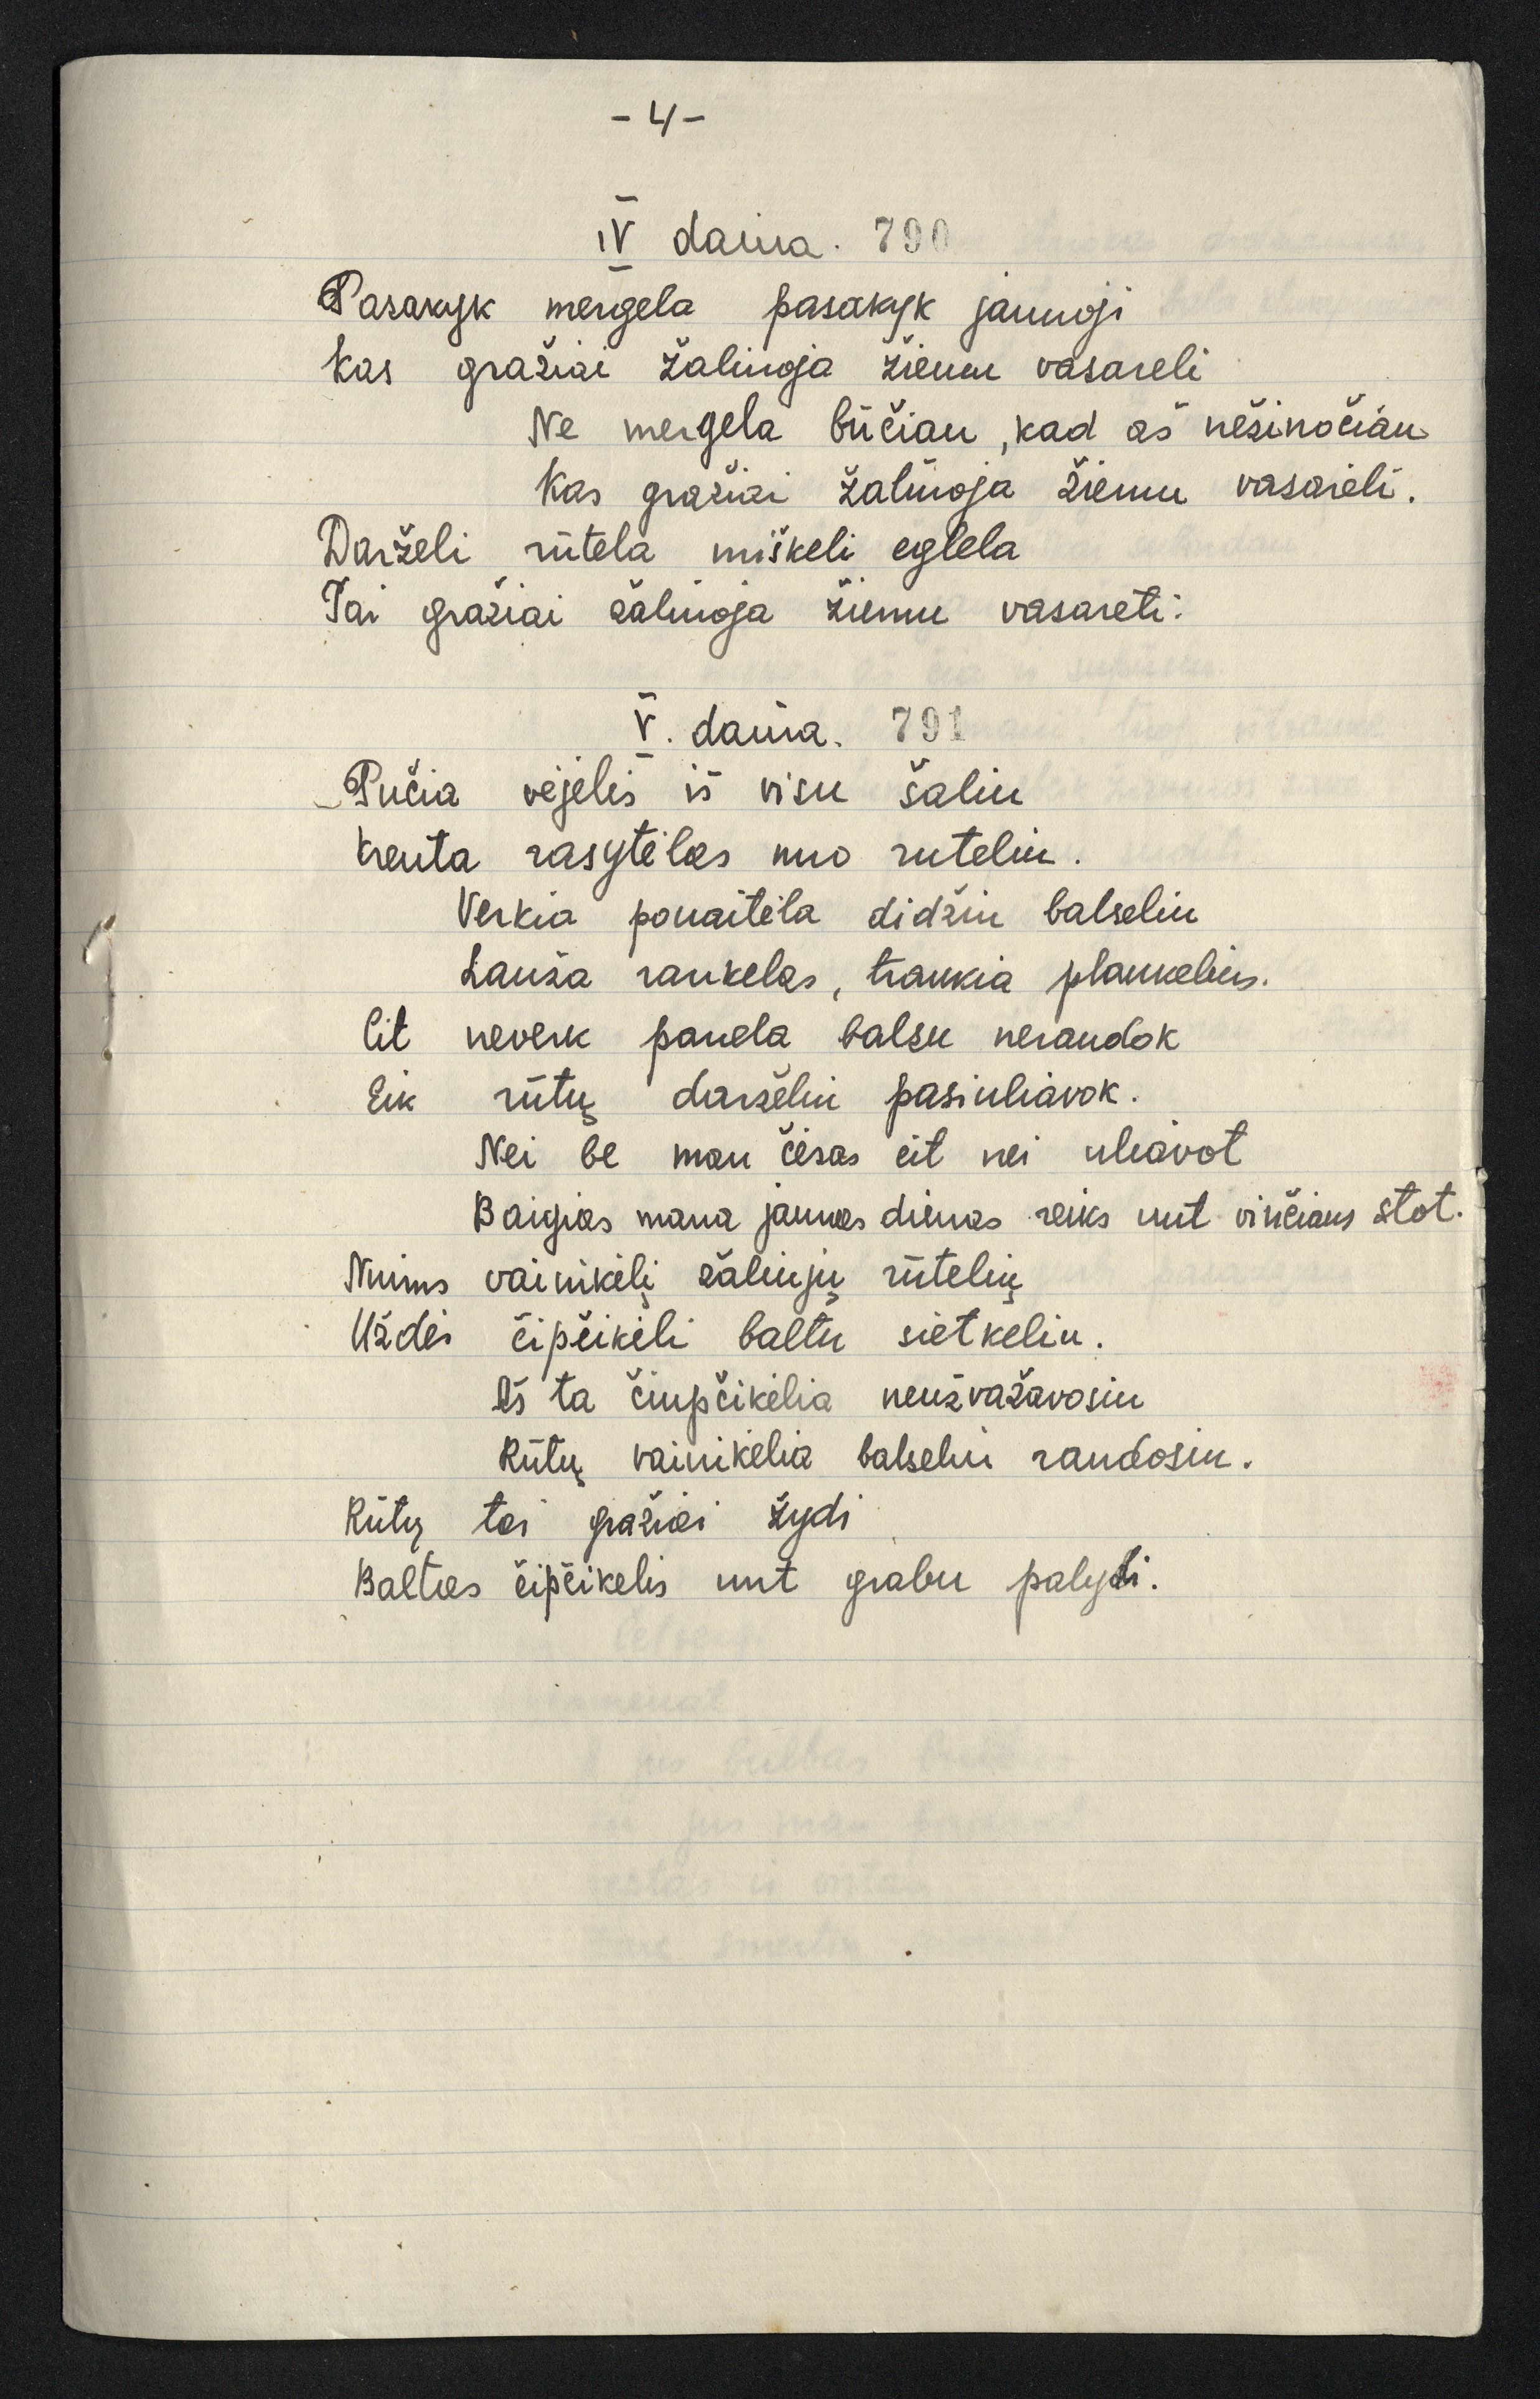 - 4 -
IV daina. 790
Pasakyk mergela pasakyk jaunoji
Kas gražiai žaliuoja žiemu vasareli
Ne mergela būčiau, kad aš nežinočiau
Kas gražiai žaliuoja žiemu vasareli.
Darželi rūtela miškeli eglela
Tai gražiai žaliuoja žiemu vasareli.
V. daina. 791
Pučia vėjelis iš visu šaliu
Krenta rasytėlas nuo ruteliu.
Verkia panaitėla didžiu balseliu
Lauža rankelas, traukia plaukelius.
Cit neverk panela balsu neraudok
Eik rūtų darželiu pasiuliavok.
Nei be man čėsas eit nei uliavot
Baigias mana jaunas dienas reiks unt vinčiaus stot.
Nuims vainikėlį žaliujų rūtelių
Uždės čipčikėli baltu sietkeliu.
Aš ta čiupčikėlia neužvažavosiu
Rūtų vainikėlia balseliu raudosiu.
Rūtų tai gražiai žydi
Baltas čipčikelis unt grabu palydi.